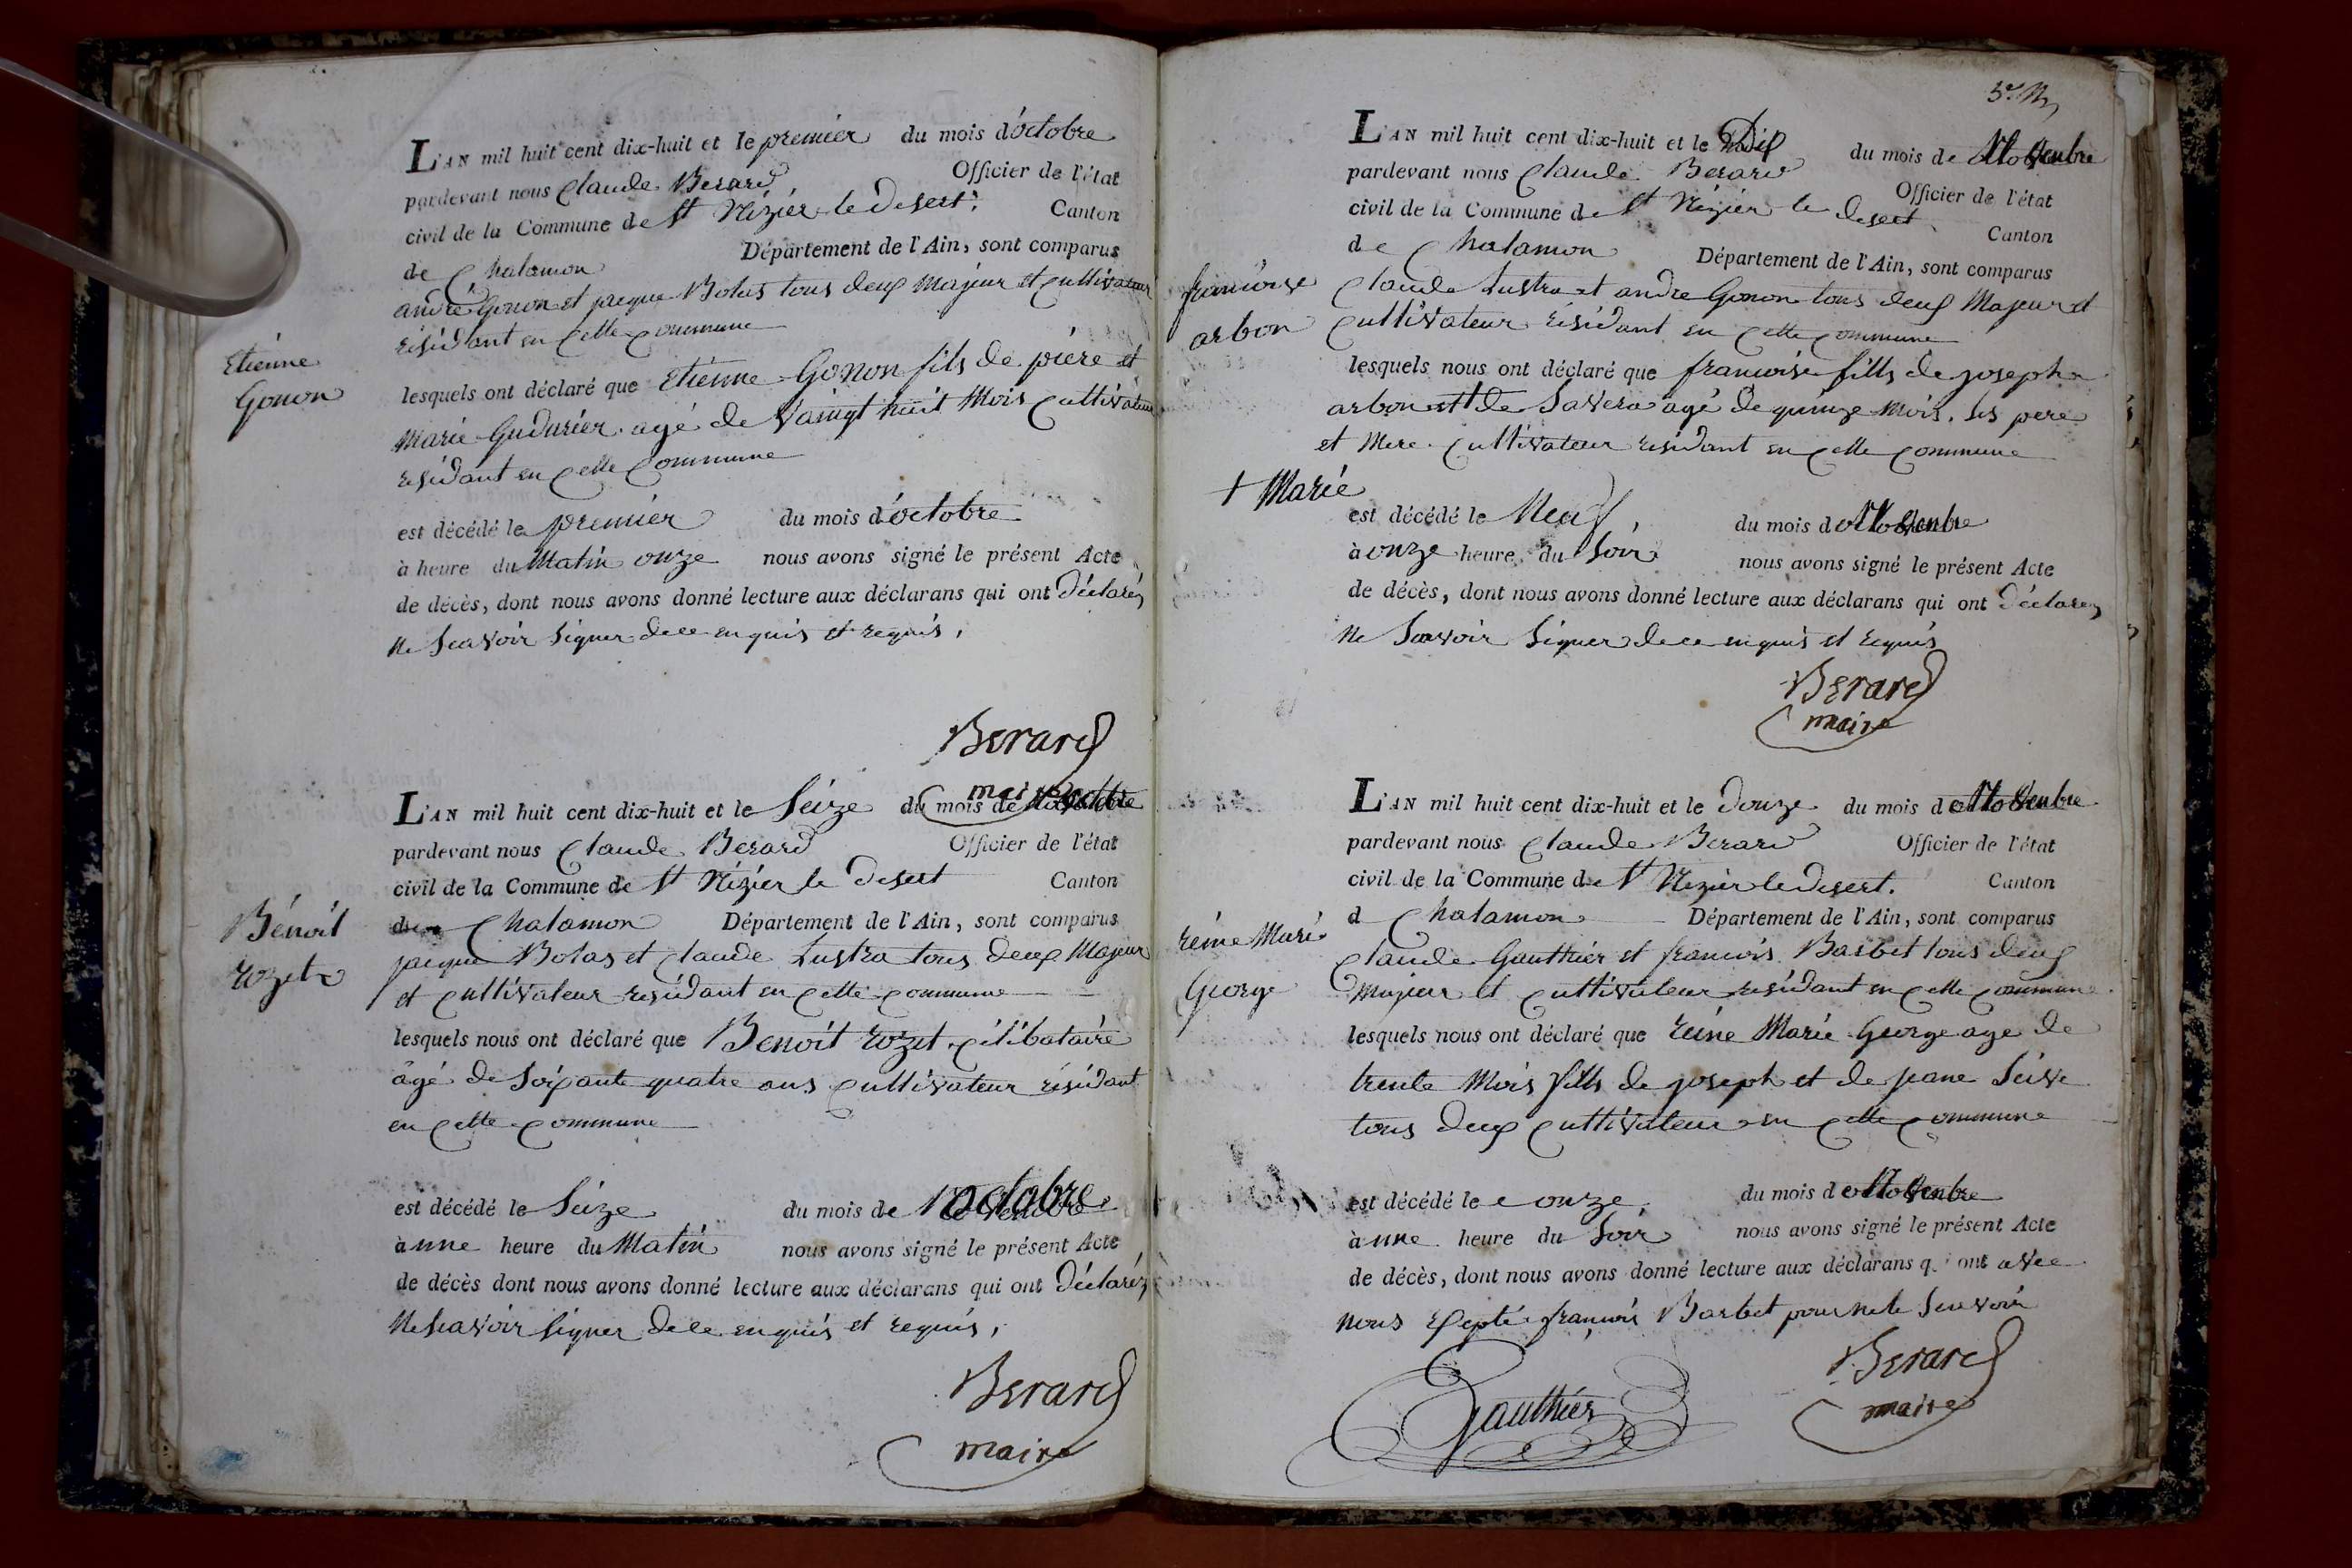 L'AN mil huit cent dix-huit et le premier du mois d'octobre
pardevant nous Claude Berard Officier de l'état
civil de la Commune de St Nézier le desert, Canton
de Chalamon Département de l'Ain, sont comparus
andré Gonon et jacque Bolas tous deux Majeur et Cultivateur
résidant en Cette Commune
Etienne
Gonon
lesquels ont déclaré que Etienne Gonon fils de piere et
Marie Gudurier agé de Vaingt huit Mois Cultivateur
résidant en Cette Commune
est décédé le premier du mois d'octobre
à heure du Matin onze nous avons signé le présent Acte
de décès, dont nous avons donné lecture aux déclarans qui ont Déclarés
Ne Scavoir Signer de ce enquis et requis,
Berard
maire
L'AN mil huit cent dix-huit et le Seize du mois de
pardevant nous Claude Berard Officier de l'état
civil de la Commune de St Nézier le desert Canton
Bénoit
Rozet
de Chalamon Département de l'Ain, sont comparus
jacque Bolas et Claude Lustra tous deux Majeur
et Cultivateur residant en Cette Commune
lesquels nous ont déclaré que Benoit Rozet Célibataire
âgé de Soixante quatre ans Cultivateur résidant
en Cette Commune
est décédé le Seize du mois de octobre
à une heure du Matin nous avons signé le présent Acte
de décès dont nous avons donné lecture aux déclarans qui ont Déclarés
Ne Scavoir Signer de ce enquis et requis,
Berard
maire
L'AN mil huit cent dix-huit et le Dix du mois de Novenbre
pardevant nous Claude Berard Officier de l'état
civil de la Commune de St Nézier le desert Canton
de Chalamon Département de l'Ain, sont comparus
francoise
arbon
Claude Lustra et andre Gonon tous deux Majeur et
Cultivateur résidant en Cette Commune
lesquels nous ont déclaré que francoise fills de joseph
arbon et + de Savera agé de quinze mois. Ses pere
et Mere Cultivateur residant en Cette Commune
+ Marie
est décédé le Neuf, du mois de Novenbre
à onze heure du Soir nous avons signé le présent Acte
de décès, dont nous avons donné lecture aux déclarans qui ont Déclarés
Ne Scavoir Signer de ce enquis et requis
Berard
maire
L'AN mil huit cent dix-huit et le Douze du mois de Novenbre
pardevant nous Claude Berard Officier de l'état
civil de la Commune de St Nezier le desert. Canton
d Chalamon Département de l'Ain, sont comparus
reine Marie
George
Claude Gauthier et francois Barbet tous deux
Majeur et Cultivateur residant en Cette Commune
lesquels nous ont déclaré que reine Marie George age de
trente Mois fills de joseph et de jeane Seive
tous deux Cultivateur en Cette Commune
est décédé le onze du mois de Novenbre
à une heure du Soir nous avons signé le présent Acte
de décès, dont nous avons donné lecture aux déclarans q i ont avec
nous Exepté francois Barbet pour ne le Scavoir
Gauthier
Berard
maire